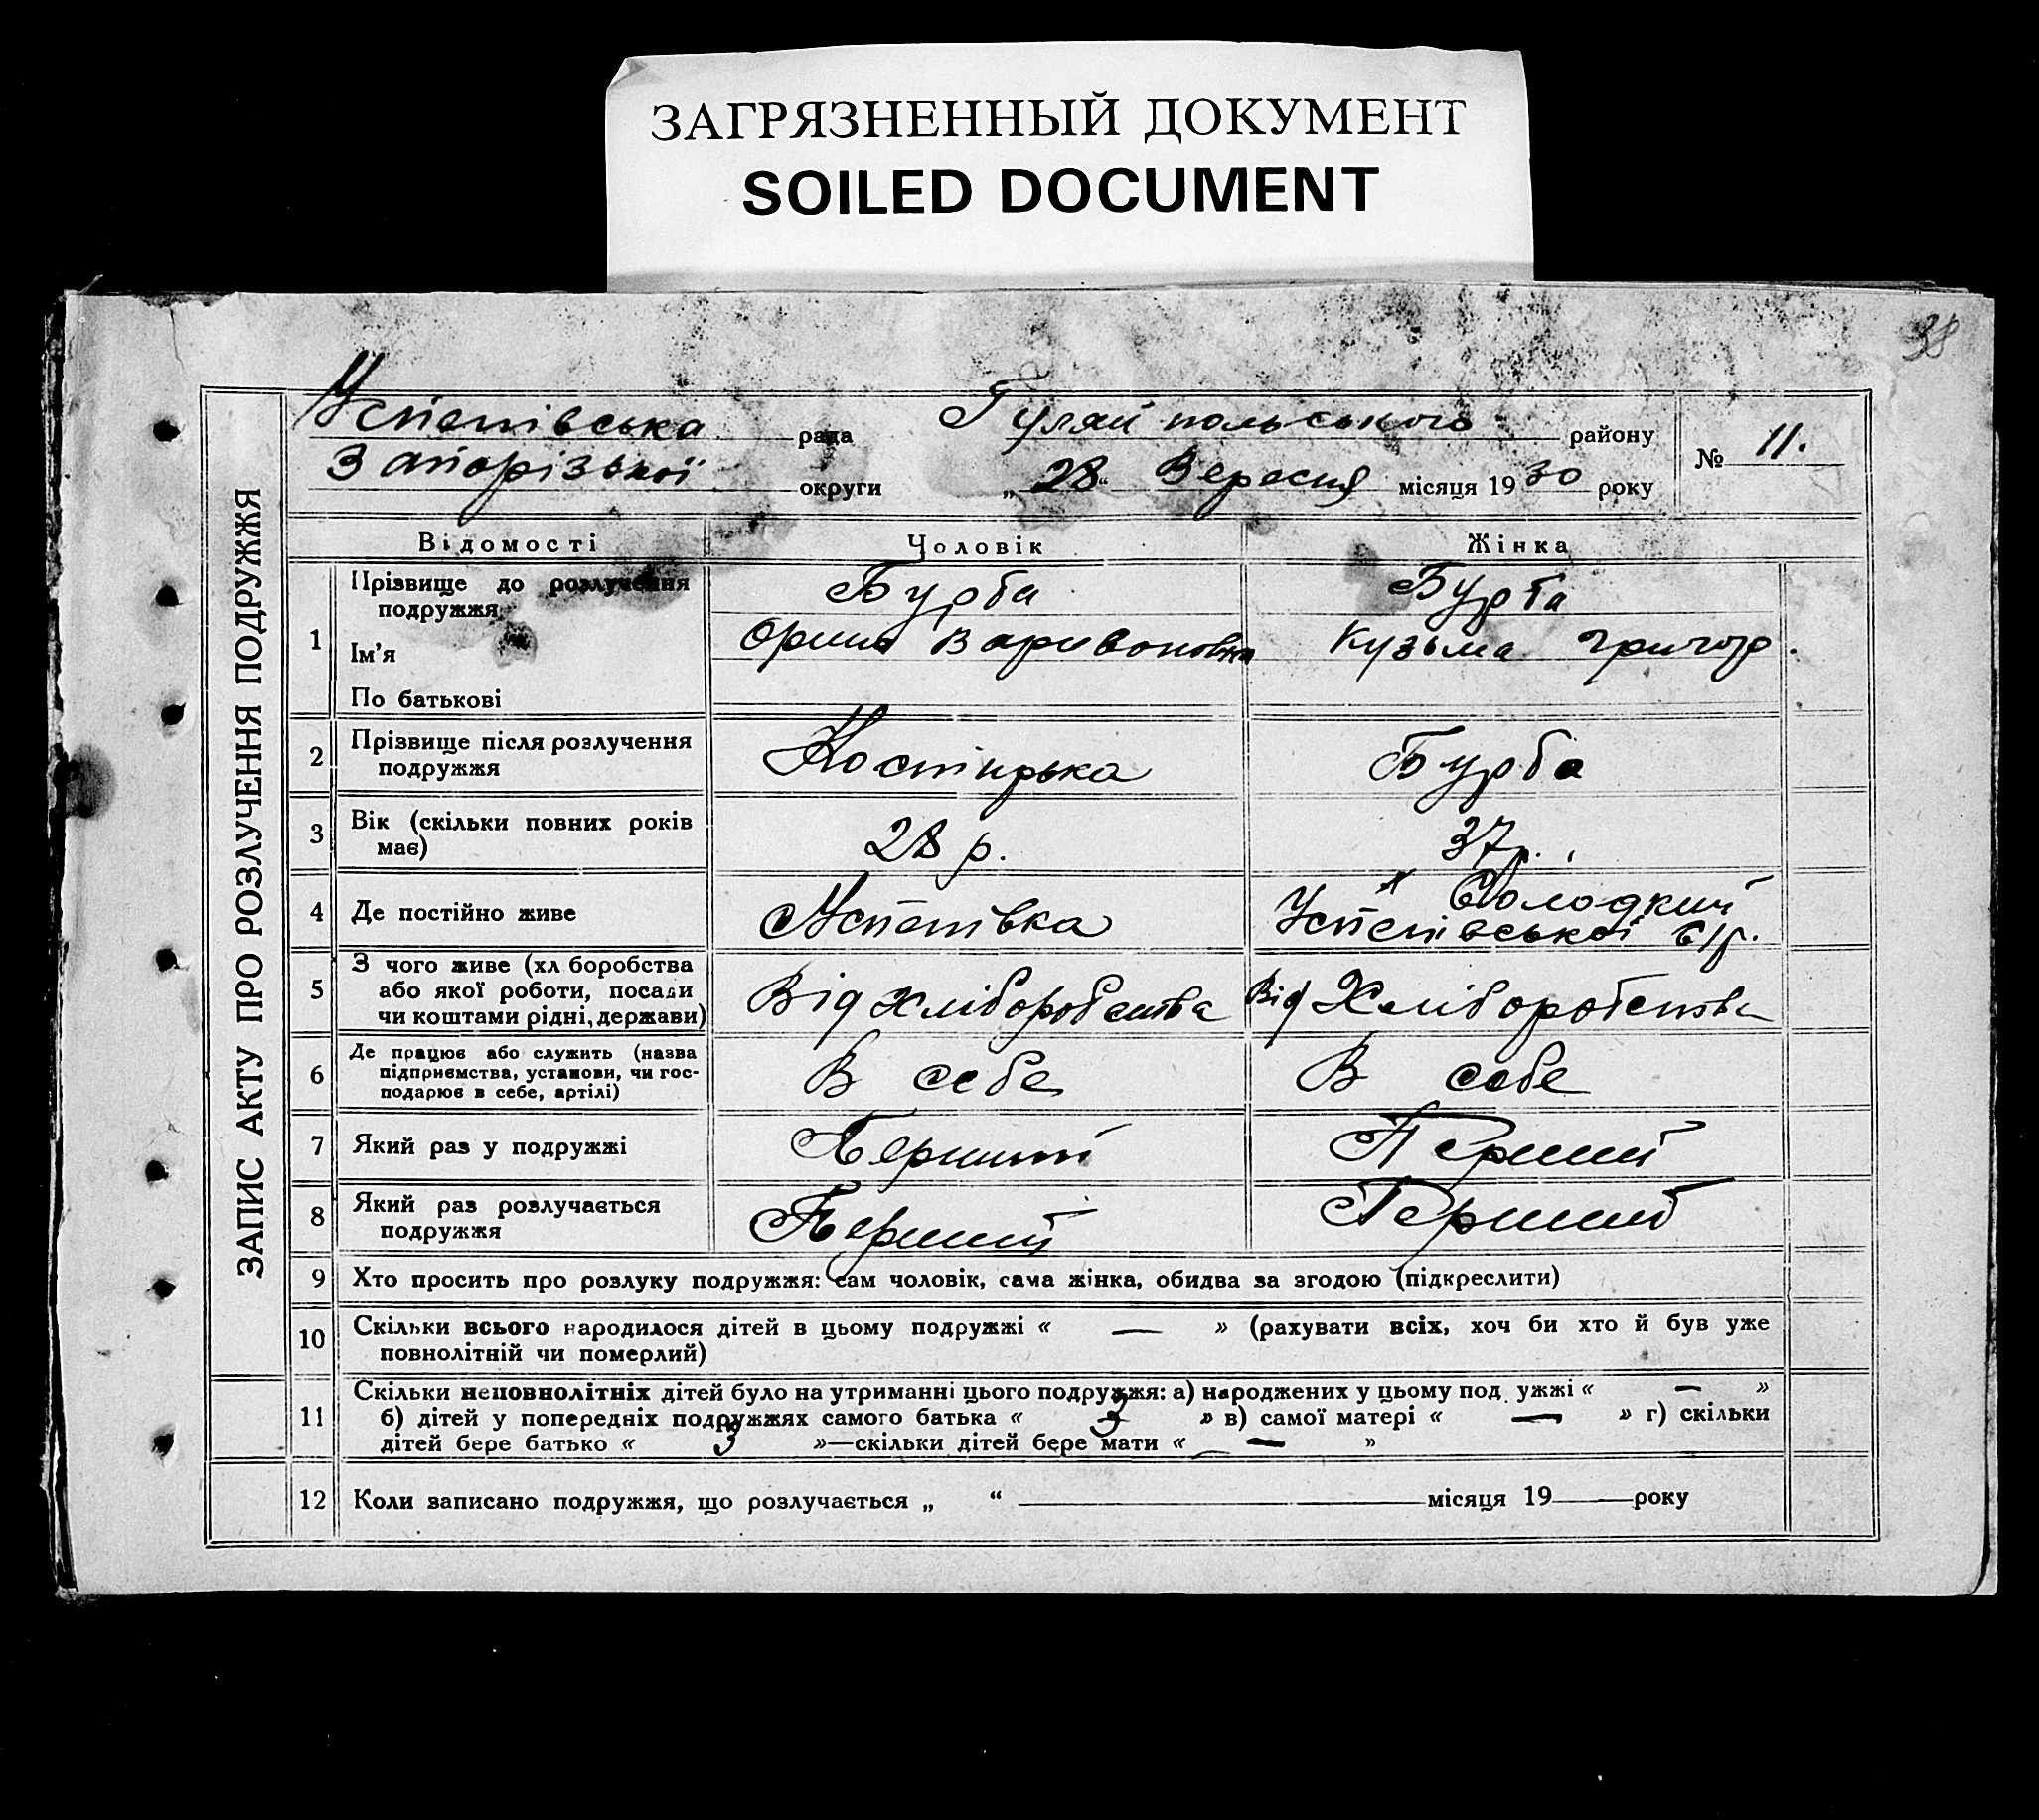 ЗАГРЯЗНЕННЫЙ ДОКУМЕНТ
SOILED DOCUMENT
38
ЗАПИС АКТУ ПРО РОЗЛУЧЕННЯ ПОДРУЖЖЯ
Успенівська рада Гуляйпольського району
№ 11.
Запорізької округи „28“ Вересня місяця 1930 року
Відомості Чоловік Жінка
1 Прізвище до розлучення подружжя Бурба Бурба
Ім'я Орина Варивоновна Кузьма Григор.
По батькові
2 Прізвище після розлучення подружжя Бурба
3 Вік (скільки повних років має) 28 р. 37 р.
4 Де постійно живе Успенівка х Солодкий
Успенівської с/р.
5 З чого живе (хліборобства або якої роботи, посади чи коштами рідні, держави) Від хліборобства Від Хліборобства
6 Де працює або служить (назва підприємства, установи, чи господарює в себе, артілі) В себе В себе
7 Який раз у подружжі Перший Перший
8 Який раз розлучається подружжя Перший Перший
9 Хто просить про розлуку подружжя: сам чоловік, сама жінка, обидва за згодою (підкреслити)
10 Скільки всього народилося дітей в цьому подружжі « — » (рахувати всіх, хоч би хто й був уже
повнолітній чи померлий)
11 Скільки неповнолітніх дітей було на утриманні цього подружжя: а) народжених у цьому под ужжі « — »
б) дітей у попередніх подружжях самого батька « 3 » в) самої матері « — » г) скільки
дітей бере батько « 3 »—скільки дітей бере мати « — »
12 Коли записано подружжя, що розлучається „ “ місяця 19 року